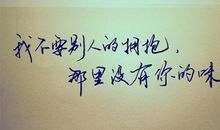 我不要别人的拥抱，
那里没有你的味